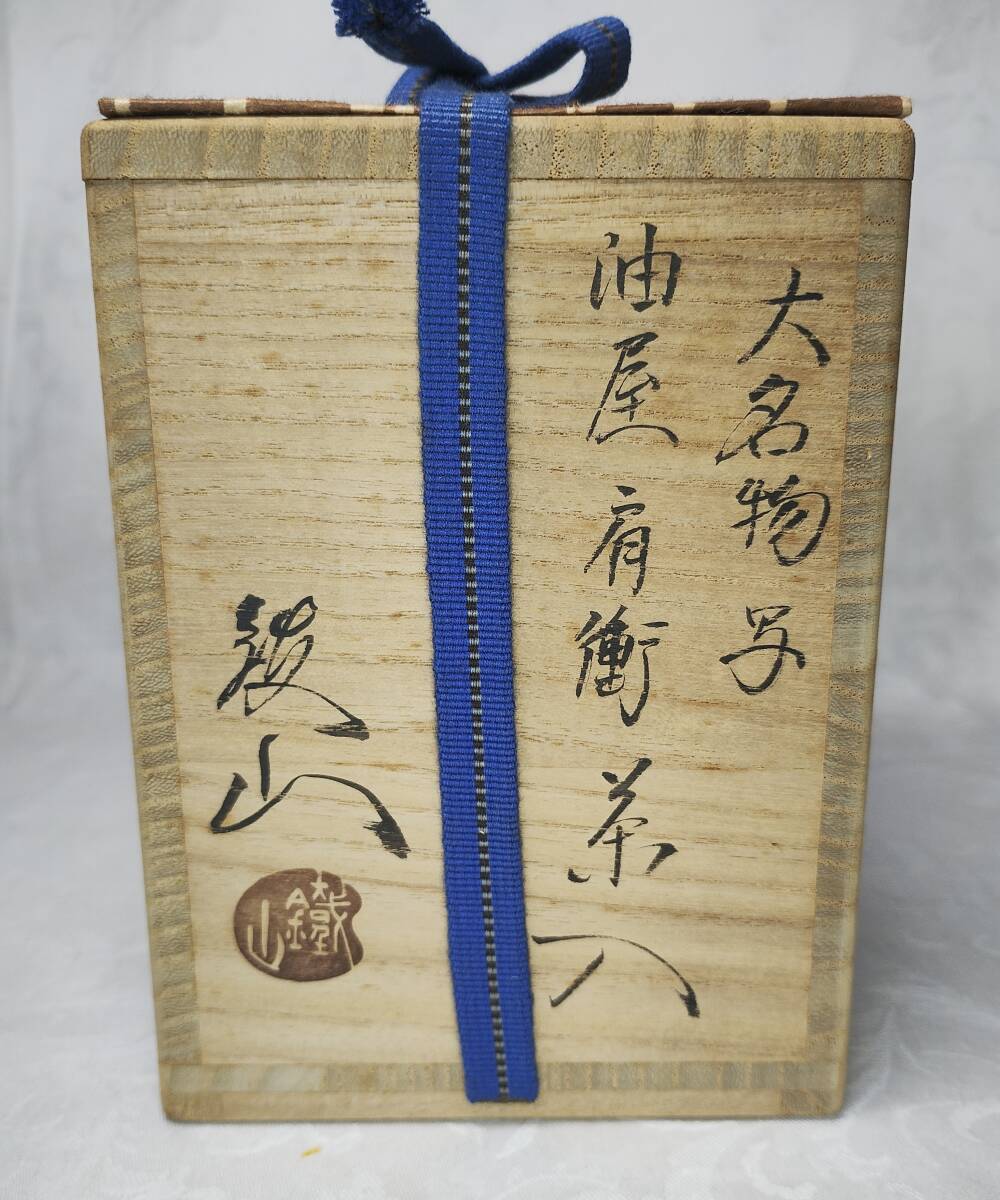 大名物写
油屋肩衝茶入
鐵山
鐵山